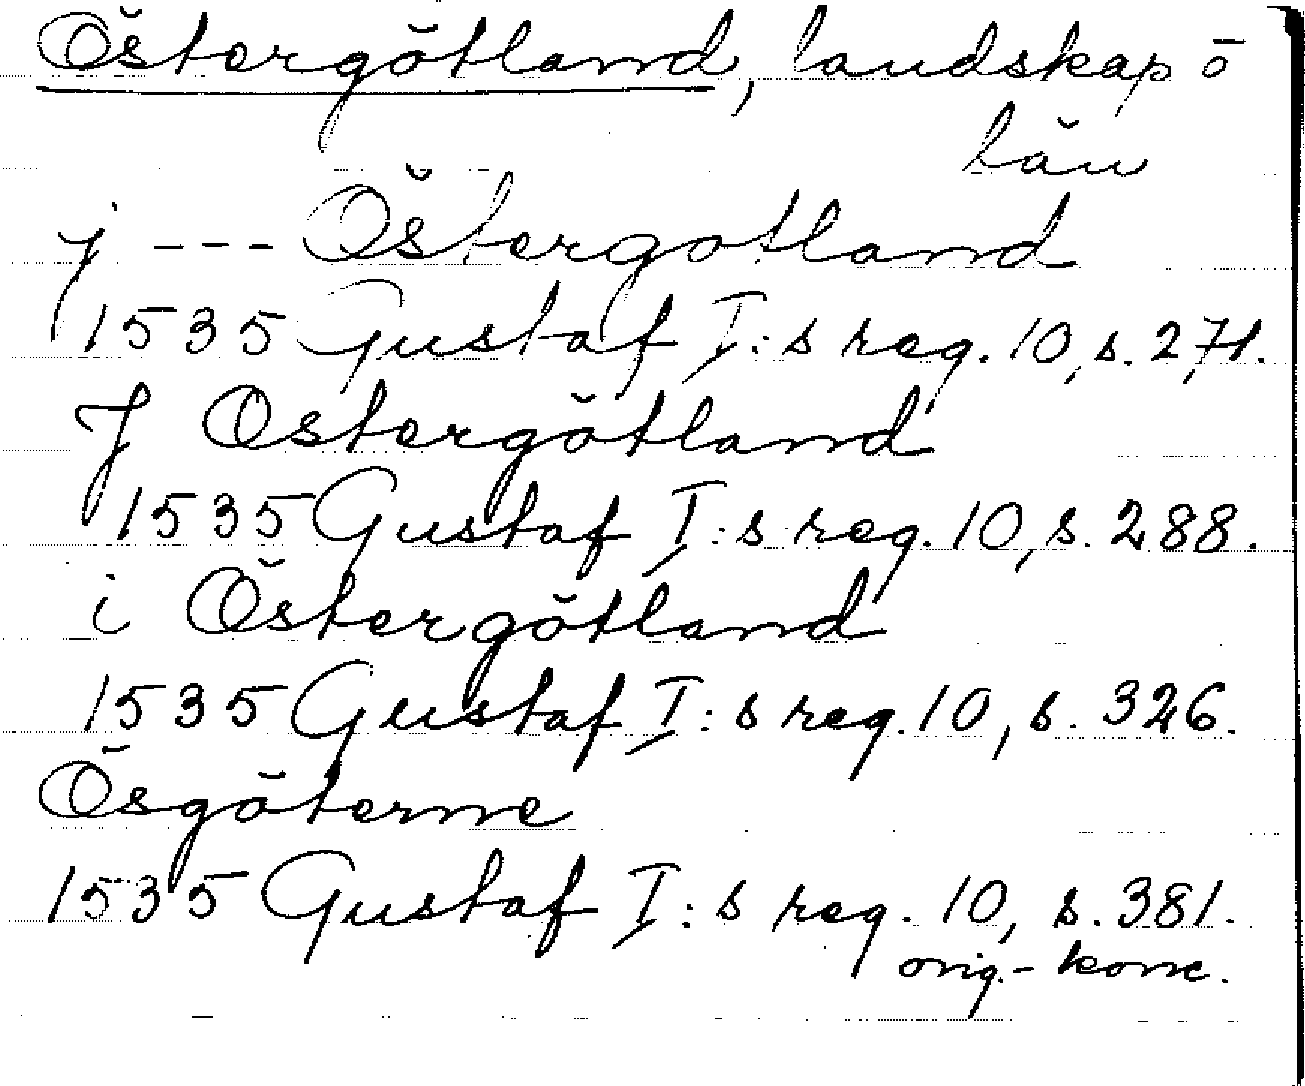 Östergötland, landskap o
län
j --- Östergotland
1535 Gustaf I:s reg. 10, s. 271.
J Ostergötland
1535 Gustaf I:s reg. 10, s. 288.
i Östergötland
1535 Gustaf I:s reg. 10, s. 326.
Ösgöterne
1535 Gustaf I:s reg. 10, s. 381.
orig.- konc.